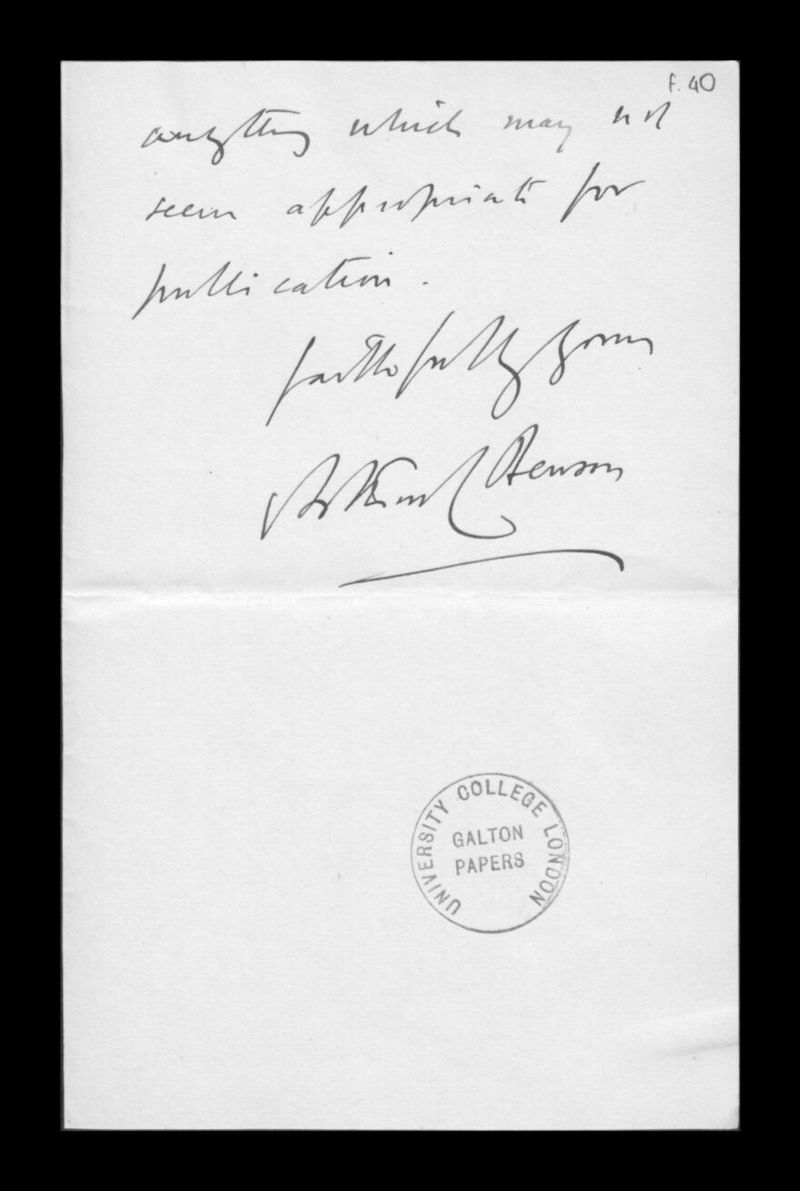 f. 40
anything which may not
seem appropriate for
publication.
faithfully yours
Arthur C Benson
UNIVERSITY COLLEGE LONDON
GALTON
PAPERS